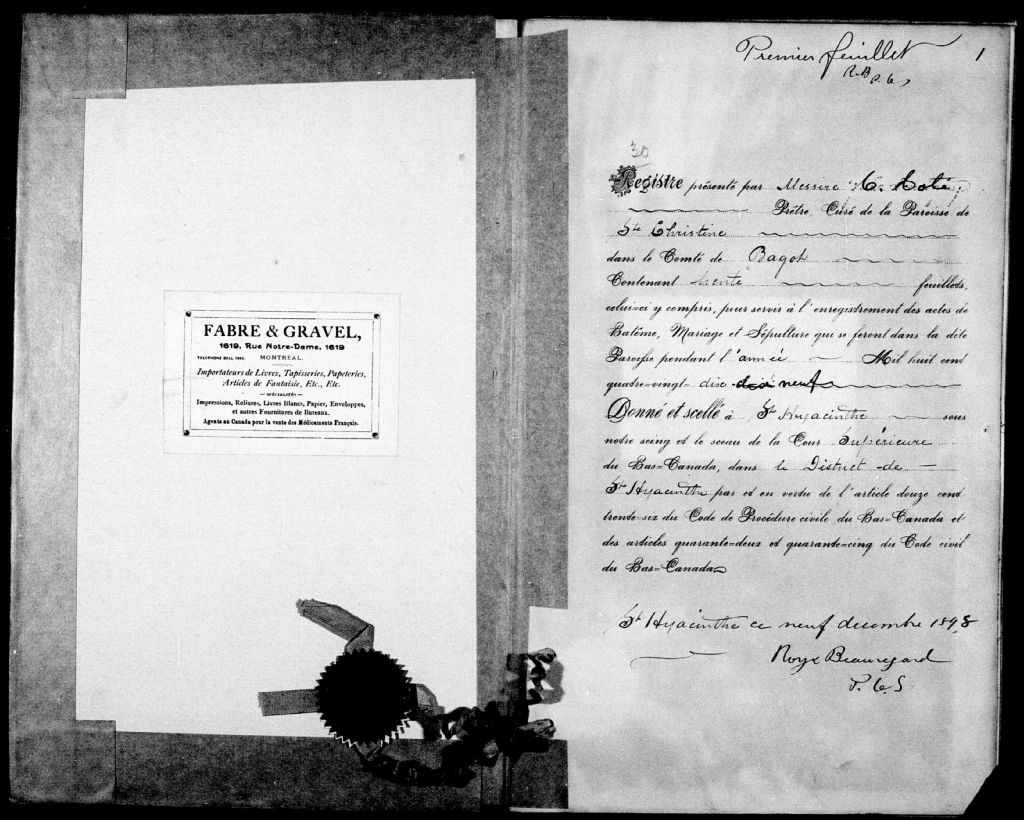 FABRE & GRAVEL,
1619, Rue Notre-Dame, 1619
TELEPHONE BELL MONTREAL.
Importateurs de Livres, Tapisseries, Papeteries,
Articles de Fantaisie, Etc., Etc.
— SPÉCIALITÉS —
Impressions, Reliures, Livres Blancs, Papier, Enveloppes,
et autres Fournitures de Bureaux.
Agents au Canada pour la vente des Médicaments Français.
Premier feuillet 1
R.B
30
Registre présenté par Messire C.
Prêtre, Curé de la Paroisse de
Ste Christine
dans le Comté de Bagot
Contenant trente feuillets,
celui=ci y compris, pour servir à l'enregistrement des actes de
Batême, Mariage et Sépulture qui se feront dans la dite
Paroisse pendant l'année Mil huit cent
quatre-vingt disc neuf
Donné et scellé à St Hyacinthe sous
notre seing et le sceau de la Cour Supérieure
du Bas=Canada, dans le District de
St Hyacinthe par et en vertu de l'article douze cent
trente-six du Code de Procédure civile du Bas=Canada et
des articles quarante=deux et quarante=cinq du Code civil
du Bas=Canada
St Hyacinthe ce neuf decembre 1898
Roy & Beauregard
P. C. S